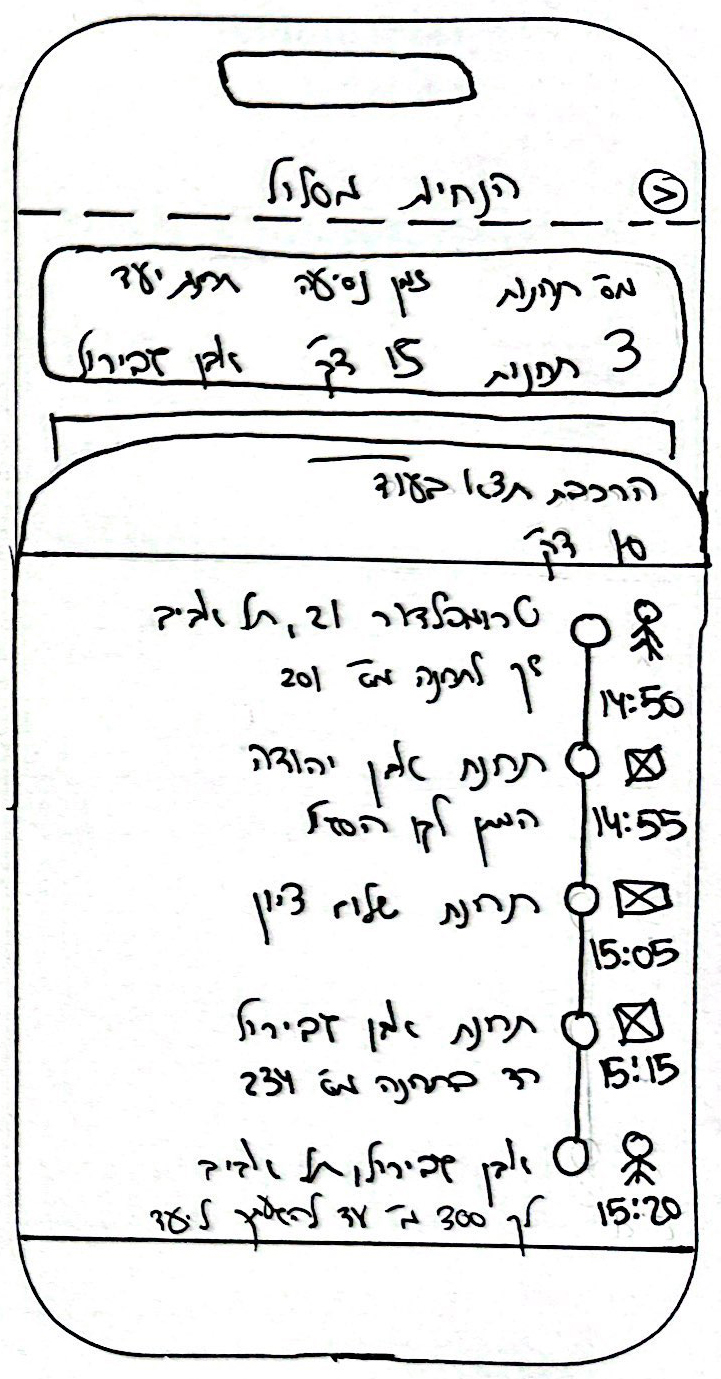 הנחיות מסלול
מס' תחנות זמן נסיעה תחנת יעד
3 תחנות 15 דק' אבן גבירול
הרכבת תצא בעוד
10 דק'
טרומפלדור 21, תל אביב
לך לתחנה מס' 201
14:50
תחנת אבן יהודה
המתן לקו
14:55
תחנת שלום ציון
15:05
תחנת אבן גבירול
רד בתחנה מס' 234
15:15
אבן גבירול, תל אביב
לך 300 מ' עד להגעתך ליעד
15:20